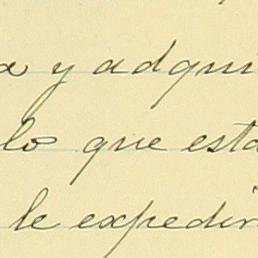 a y adqui
lo que esta
le expedir